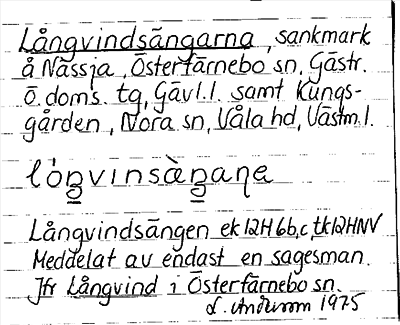 Långvindsängarna, sankmark
å Nässja, Österfärnebo sn, Gästr.
ö. doms. tg, Gävl. l. samt Kungs-
gården, Nora sn, Våla hd, Västm. l.
lóŋvinsàŋaɳa
Långvindsängen ek 12H 6b,c, tk 12HNV
Meddelat av endast en sagesman.
Jfr Långvind i Österfärnebo sn.
L. Andersson 1975